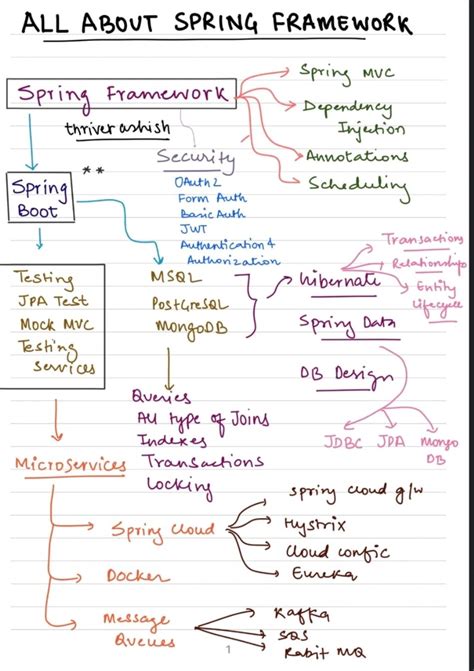 ALL ABOUT SPRING FRAMEWORK
Spring Framework
thriverashish
Spring MVC
Dependency
Injection
Annotations
Scheduling
Security
OAuth2
Form Auth
Basic Auth
JWT
Authentication &
Authorization
**
Spring
Boot
Testing
JPA Test
Mock MVC
Testing
Services
MSQL
PostGreSQL
MongoDB
Hibernate
Transactions
Relationship
Entity
Lifecycle
Spring Data
DB Design
JDBC JPA Mongo
DB
Queries
All type of Joins
Indexes
Transactions
Locking
Microservices
Spring Cloud
Spring Cloud g/w
Hystrix
Cloud config
Eureka
Docker
Message
Queues
Kafka
SQS
Rabit MQ
1